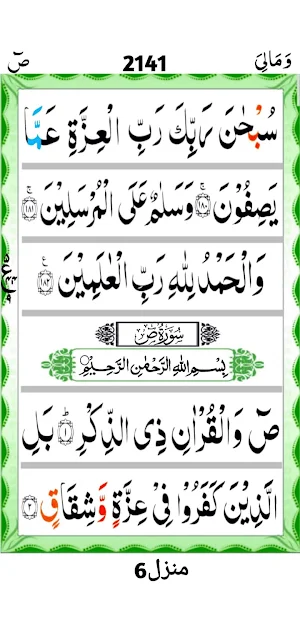 وَمَالِیَ 2141 صٓ
سُبْحٰنَ رَبِّكَ رَبِّ الْعِزَّةِ عَمَّا
یَصِفُوْنَ ۝۱۸۰ۚ وَسَلٰمٌ عَلَی الْمُرْسَلِیْنَ ۝۱۸۱ۚ
وَالْحَمْدُ لِلّٰهِ رَبِّ الْعٰلَمِیْنَ ۝۱۸۲ع
سُوْرَةُ صٓ
بِسْمِ اللّٰهِ الرَّحْمٰنِ الرَّحِیْمِ
صٓ وَالْقُرْاٰنِ ذِی الذِّكْرِ ۝۱ؕ بَلِ
الَّذِیْنَ كَفَرُوْا فِیْ عِزَّةٍ وَّشِقَاقٍ ۝۲
منزل6